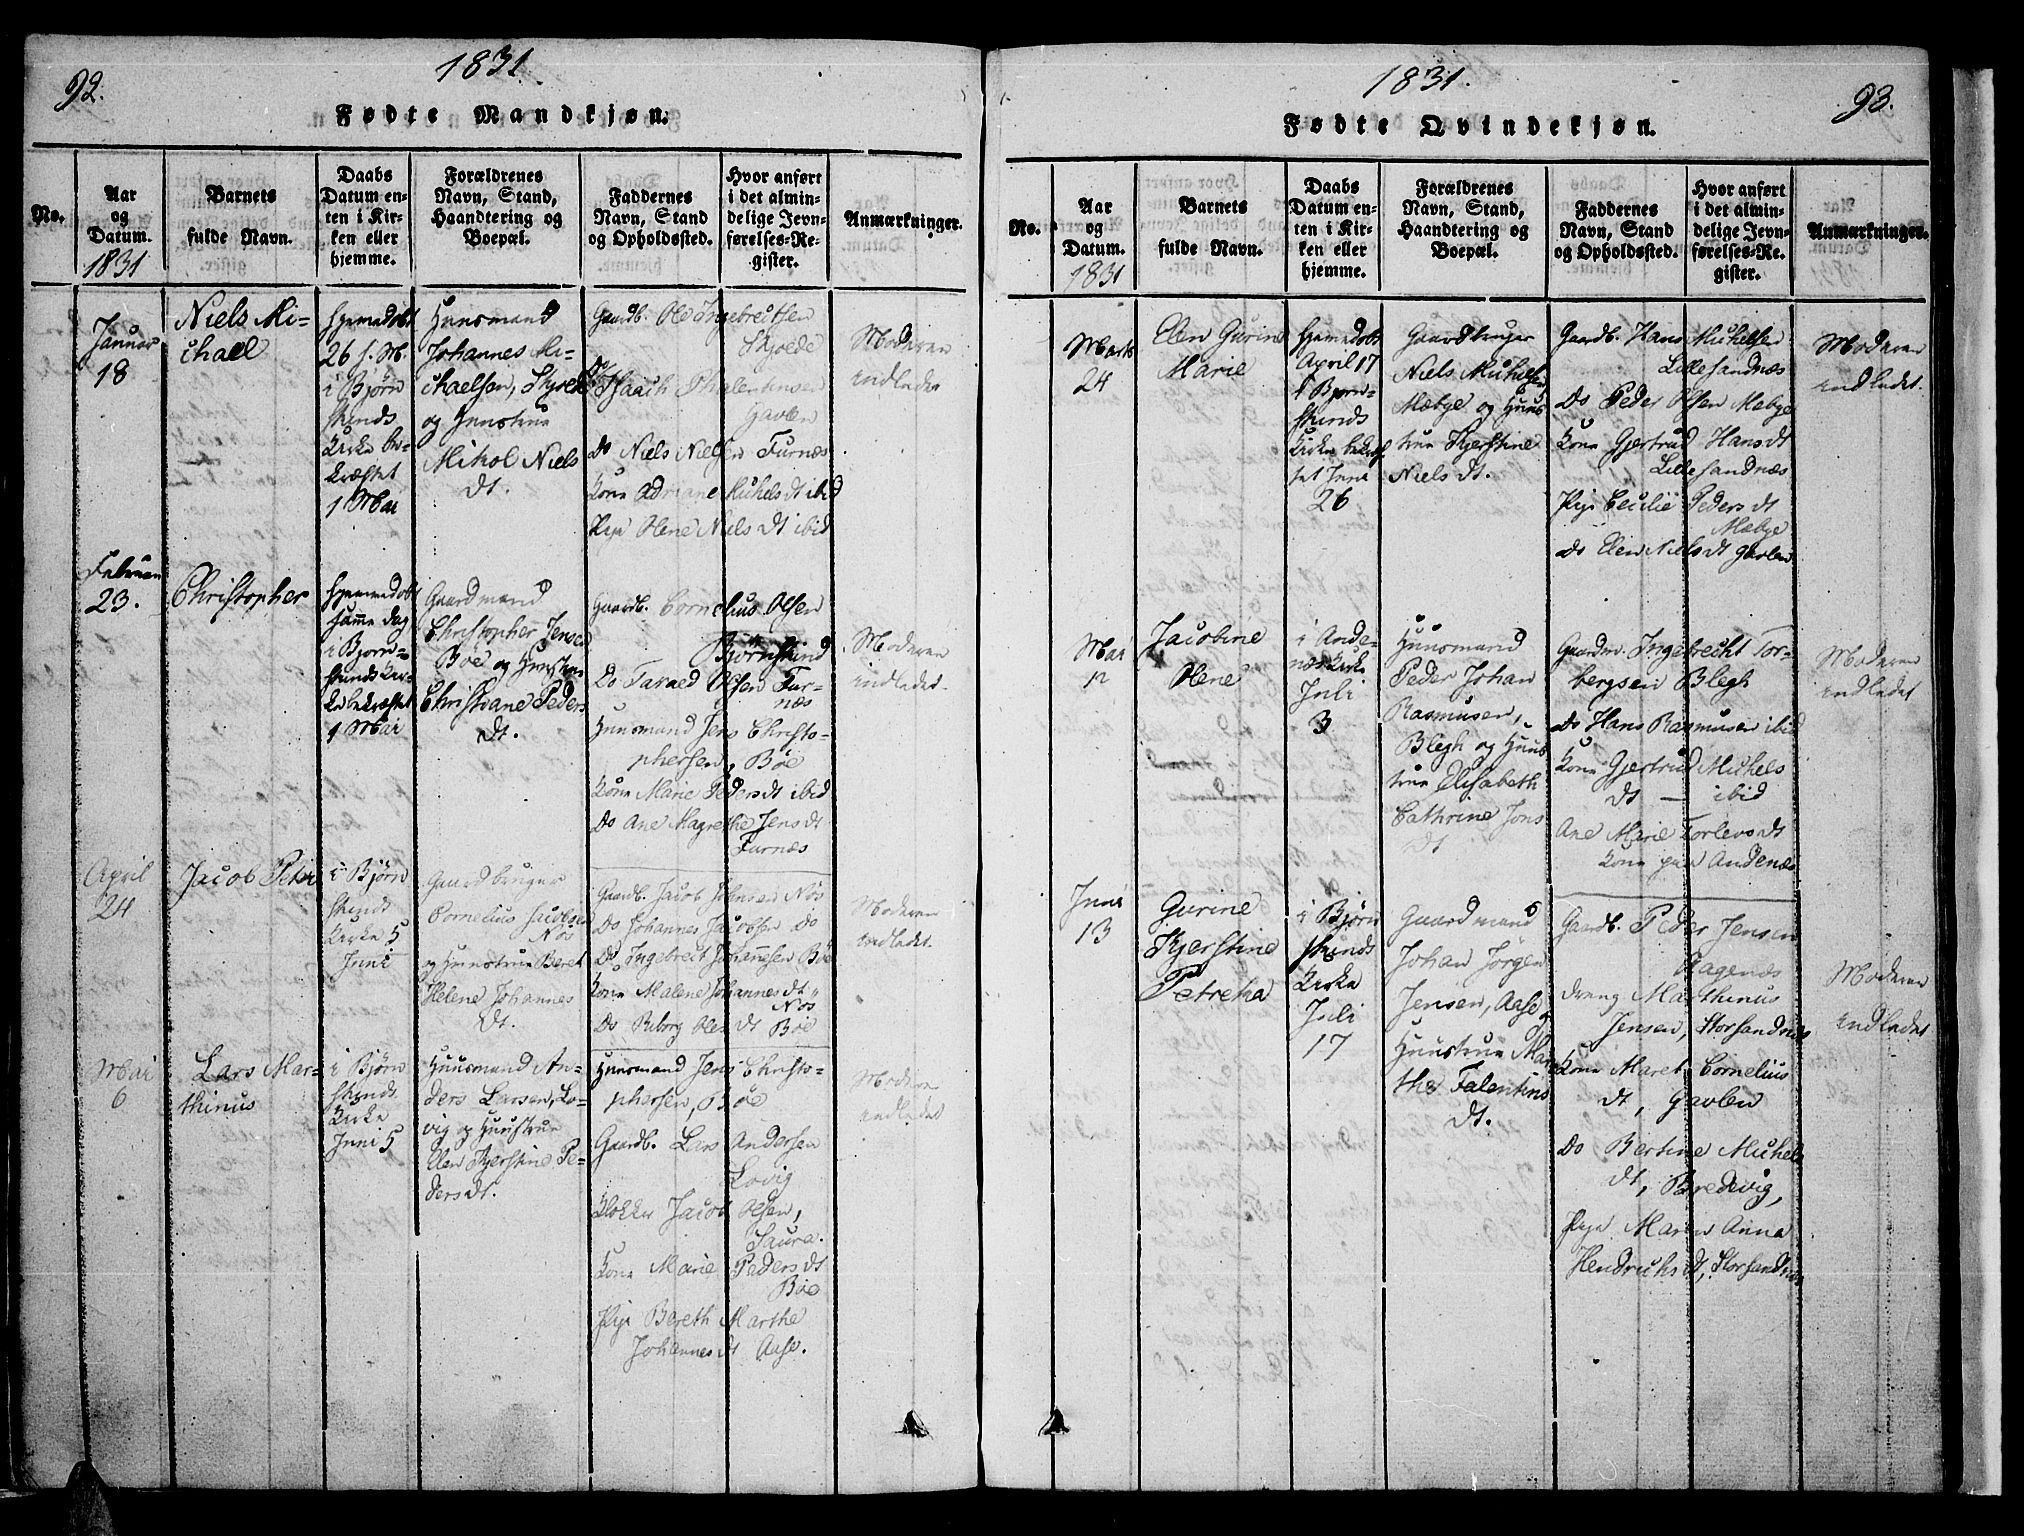 92.
1831.
Fødte Mandkjøn.
No.
Aar
og
Datum.
1831
Barnets
fulde Navn.
Daabs
Datum en-
ten i Kir-
ken eller
hjemme.
Forældrenes
Navn, Stand,
Haandtering og
Boepæl.
Faddernes
Navn, Stand
og Opholdssted.
Hvor anført
i det almin-
delige Jevn-
førelses-Re-
gister.
Anmærkninger.
Januar
18
Niels Mi-
chael
Hjemedøbt
26 s. M.
i Bjørn
skinds
Kirke be-
kræftet
1 Mai
Huusmand
Johannes Mi-
chaelsen, Skjolde
og Huustrue
Mikol Niels
dt.
Gaardb. Ole Ingebretsen
Skjolde
Do Isaach
Gavlen
Do Niels Nielsen Furnæs
Kone Adriane Michels dt ibid
Pige Olene Niels dt ibid
Moderen
indledet
Februar
23.
Christopher
Hjemmedøbt
samme dag
i Bjørn-
skinds Kir-
ke bekræftet
1 Mai
Gaardmand
Christopher Jensen
Böe og Huustrue
Christiane Peders
dt.
Gaardb. Cornelius Olsen
Björnskind
Do Taraed Olsen Fur-
næs
Huusmand Jens Christo-
phersen, Böe
Kone Marie Pedersdt ibid
Do Ane Magrethe Jens dt
Furnæs
Moderen
indledet.
April
24
Jacob Peter
i Bjørn
skinds
Kirke 5
Juni
Gaardbruger
Cornelius Jacobsen
Nös
og Huustrue Beret
Helene Johannes
dt.
Gaardb. Jacob Johnsen Nös
Do Johannes Jacobsen do
Do Ingebrect Johannesen Böe
Kone Malene Johannes dt
Nös
Do Riborg Oles dt Böe
Moderen
indledet.
Mai
6
Lars Mar-
thinus
i Bjørn
skinds
Kirke
Juni 5
Huusmand An-
ders Larsen, Lo-
vig og Huustrue
Elen Kjerstine Pe-
dersdt.
Huusmand Jens Christo-
phersen, Böe
Gaardb. Lars Andersen
Lovig
Klokker Jacob Olsen,
Saura.
Kone Marie Peders dt
Böe
Pige Bereth Marthe
Johannes dt Aase.
Moderen
indledet
1831.
93.
Fødte Qvindekjøn.
No.
Aar
og
Datum.
1831
Barnets
fulde Navn.
Daabs
Datum en-
ten i Kir-
ken eller
hjemme.
Forældrenes
Navn, Stand,
Haandtering og
Boepæl.
Faddernes
Navn, Stand
og Opholdssted.
Hvor anført
i det almin-
delige Jevn-
førelses-Re-
gister.
Anmærkninger.
Marts
24
Elen Gurine
Marie
Hjemedøbt
April 17
i Bjørn-
skinds
Kirke bekræf
tet Juni
26
Gaardbruger
Niels Michelsen
Mæbye og Huus
true Kjerstine
Niels dt.
Gaardb. Hans Michelsen
Lillesandnæs
Do Peder Olsen Mæbye
Kone Gjertrud Hans dt
Lillesandnæs
Pige Cecilie Peders dt
Mæbye
do Elen Niels dt Gavlen
Moderen
indledet.
Mai
12
Jacobine
Olene
i Ande-
næs Kirke
Juli
3
Huusmand
Peder Johan
Rasmusen,
Blegh og Huus
true Elisabeth
Cathrine Jons
dt
Gaardm. Ingebrecht Tor-
bergsen Blegh
Do Hans Rasmusen ibid
Kone Gjertrud Michels
dt — ibid
Ane Marie Torlevsdt
Kone paa Andenæs
Moderen
indledet
Juni
13
Gurine
Kjerstine
Petrecka
i Bjørn
skinds
Kirke
Juli
17
Gaardmand
Johan Jørgen
Jensen, Aase,
Huustrue Mar
the Falentins
dt.
Gaardb. Peder Jensen
Ragenæs
Dreng Marthinus
Jensen, Storsandnæs
Kone Maret Cornelius
dt, Gavlen
Do Bertine Michels
dt, Bredevig,
Pige Maren Anna
Hendrichs dt, Storsandnæs
Moderen
indledet